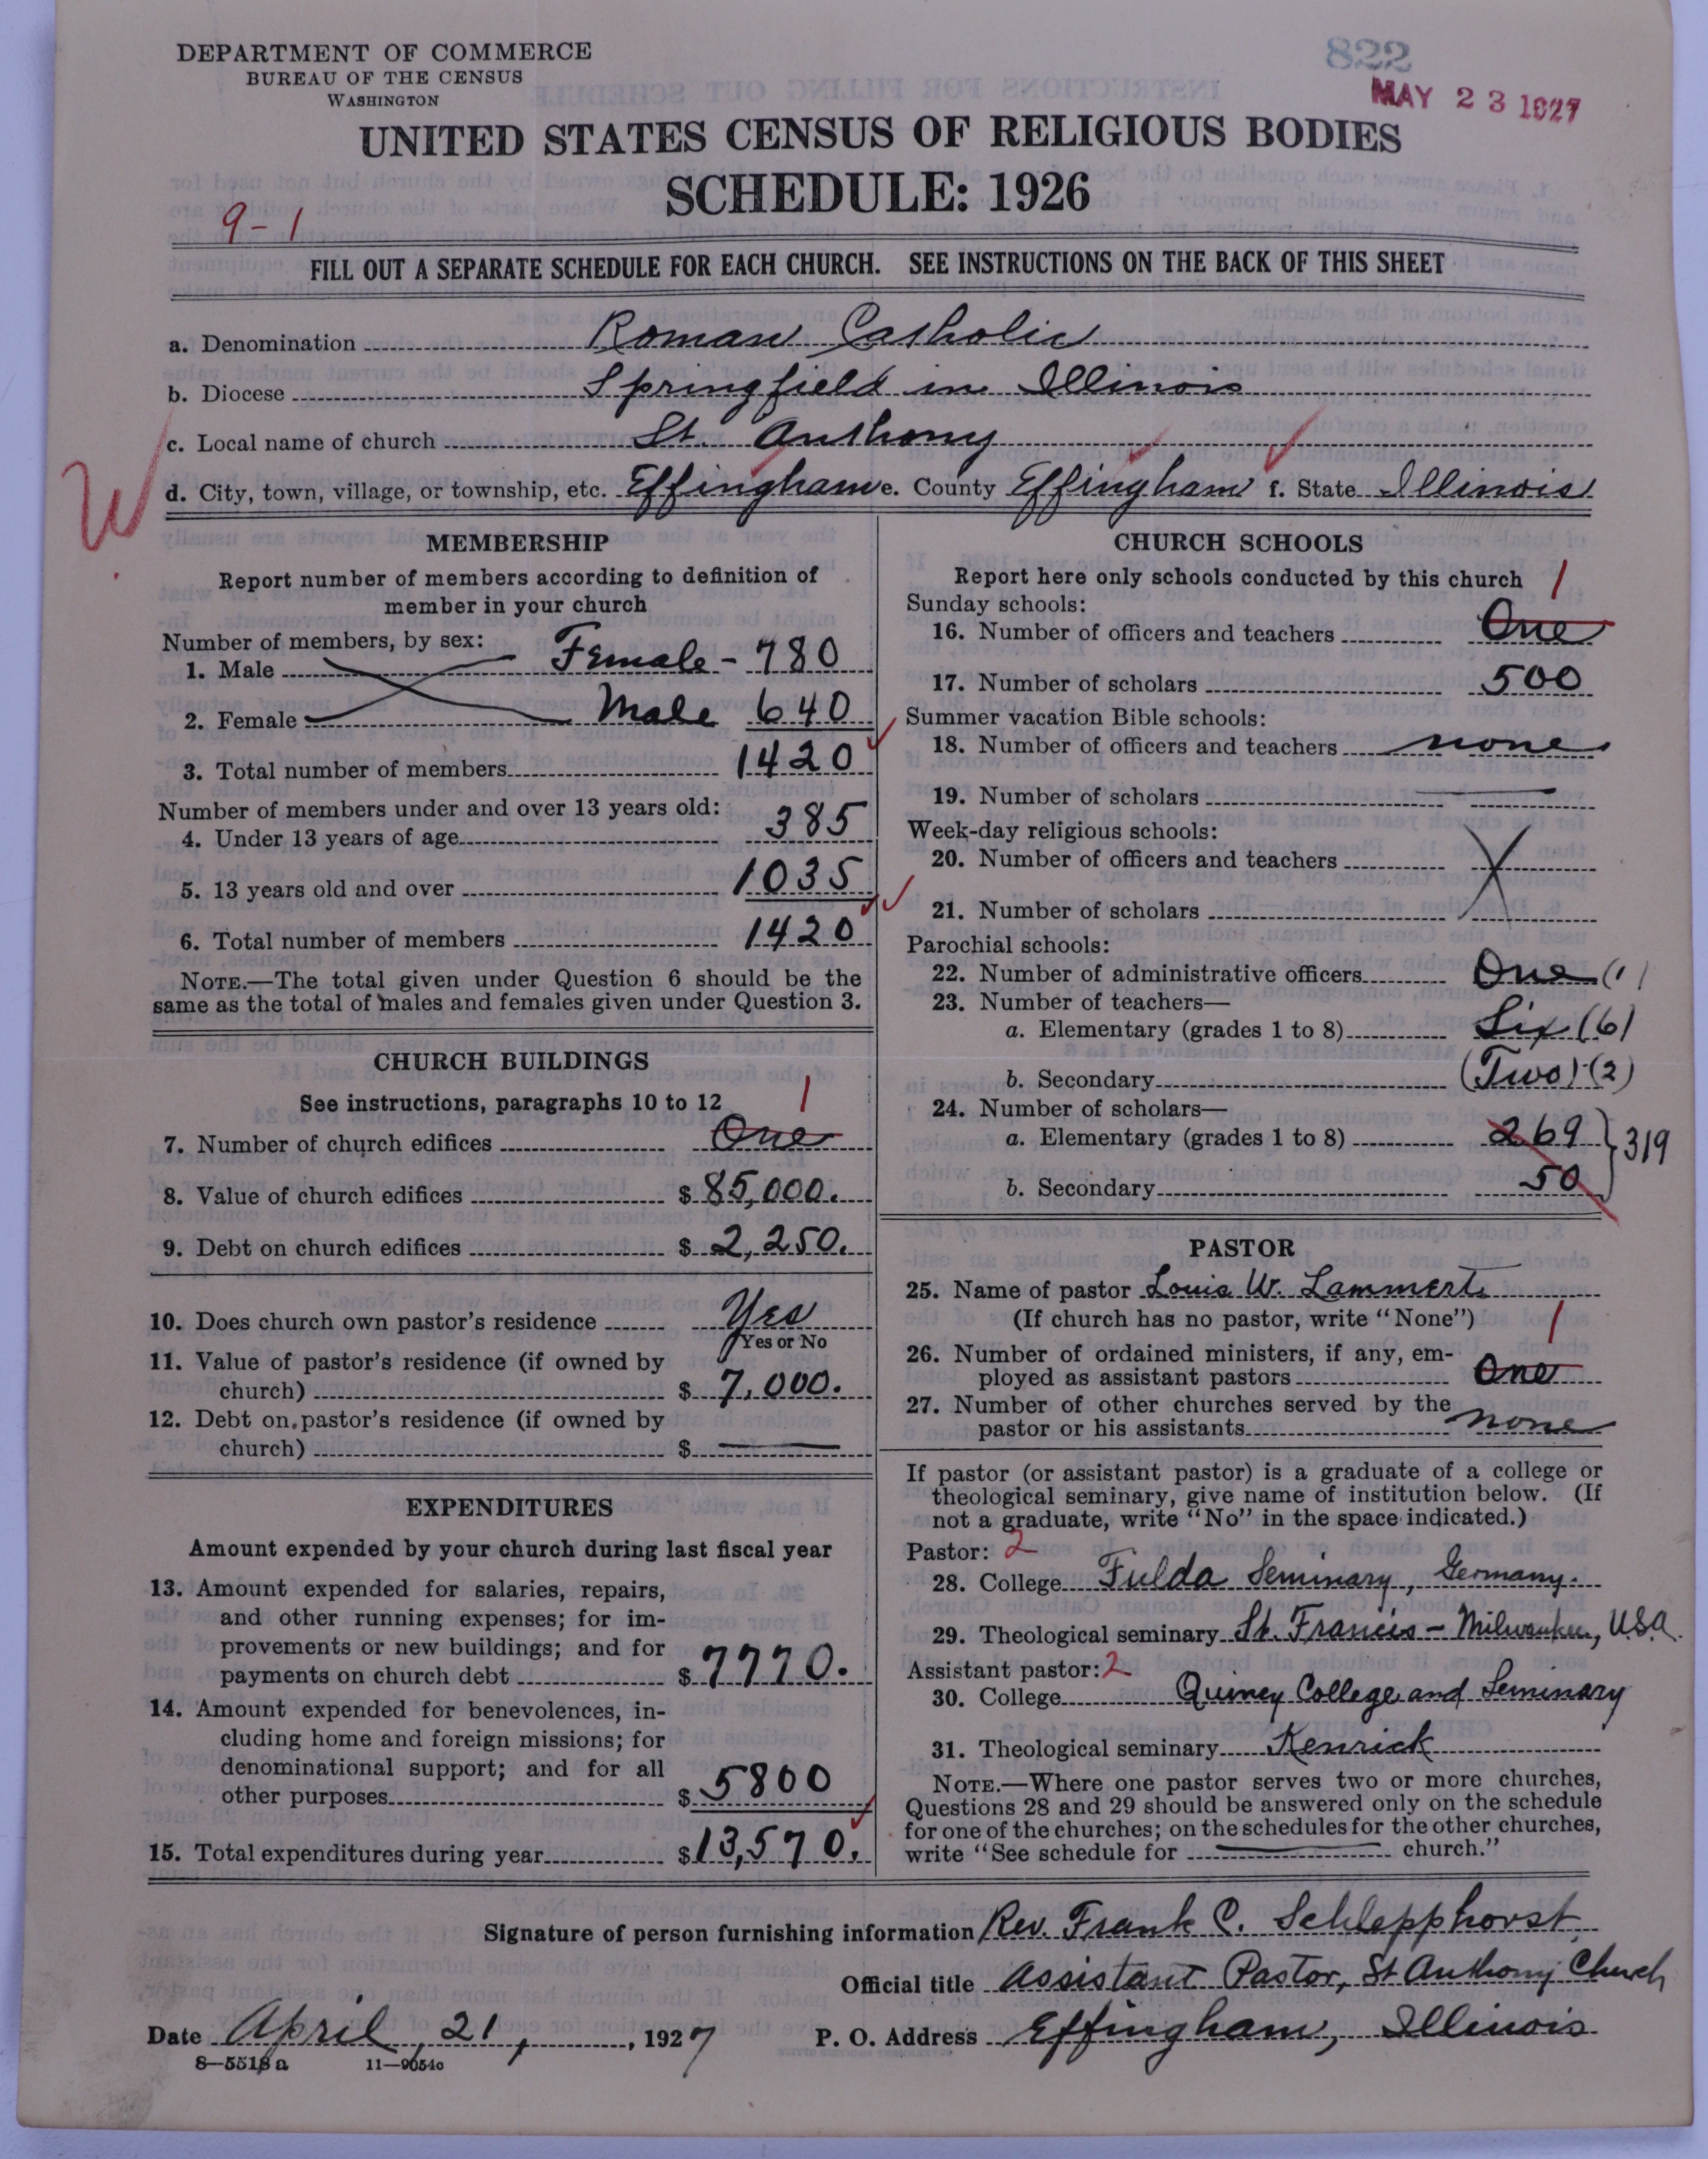 DEPARTMENT OF COMMERCE
BUREAU OF THE CENSUS
WASHINGTON
822
MAY 23 1927
UNITED STATES CENSUS OF RELIGIOUS BODIES
SCHEDULE: 1926
9-1
FILL OUT A SEPARATE SCHEDULE FOR EACH CHURCH. SEE INSTRUCTIONS ON THE BACK OF THIS SHEET
a. Denomination Roman Catholic
b. Diocese Springfield in Illinois
c. Local name of church St. Anthony
W
d. City, town, village, or township, etc. Effingham e. County Effingham f. State Illinois
MEMBERSHIP
Report number of members according to definition of
member in your church
Number of members, by sex:
1. Male Female - 780
2. Female Male 640
3. Total number of members 1420
Number of members under and over 13 years old:
4. Under 13 years of age 385
5. 13 years old and over 1035
6. Total number of members 1420
NOTE.—The total given under Question 6 should be the
same as the total of males and females given under Question 3.
CHURCH BUILDINGS
See instructions, paragraphs 10 to 12 1
7. Number of church edifices One
8. Value of church edifices $ 85,000.
9. Debt on church edifices $ 2,250.
10. Does church own pastor's residence Yes
Yes or No
11. Value of pastor's residence (if owned by
church) $ 7,000.
12. Debt on pastor's residence (if owned by
church) $ —
EXPENDITURES
Amount expended by your church during last fiscal year
13. Amount expended for salaries, repairs,
and other running expenses; for im-
provements or new buildings; and for
payments on church debt $ 7770.
14. Amount expended for benevolences, in-
cluding home and foreign missions; for
denominational support; and for all
other purposes $ 5800
15. Total expenditures during year $ 13,570.
CHURCH SCHOOLS
Report here only schools conducted by this church 1
Sunday schools:
16. Number of officers and teachers One
17. Number of scholars 500
Summer vacation Bible schools:
18. Number of officers and teachers none
19. Number of scholars —
Week-day religious schools:
20. Number of officers and teachers
21. Number of scholars
Parochial schools:
22. Number of administrative officers One (1)
23. Number of teachers—
a. Elementary (grades 1 to 8) Six (6)
b. Secondary (Two) (2)
24. Number of scholars—
a. Elementary (grades 1 to 8) 269 } 319
b. Secondary 50
PASTOR
25. Name of pastor Louis W. Lammert
(If church has no pastor, write "None") 1
26. Number of ordained ministers, if any, em-
ployed as assistant pastors One
27. Number of other churches served by the
pastor or his assistants none
If pastor (or assistant pastor) is a graduate of a college or
theological seminary, give name of institution below. (If
not a graduate, write "No" in the space indicated.)
Pastor: 2
28. College Fulda Seminary, Germany.
29. Theological seminary St. Francis - Milwaukee, USA.
Assistant pastor: 2
30. College Quincy College and Seminary
31. Theological seminary Kenrick
NOTE.—Where one pastor serves two or more churches,
Questions 28 and 29 should be answered only on the schedule
for one of the churches; on the schedules for the other churches,
write "See schedule for — church."
Signature of person furnishing information Rev. Frank C. Schlepphorst
Official title Assistant Pastor, St Anthony Church
Date April 21, 1927 P. O. Address Effingham, Illinois
8—5518a 11—9054o